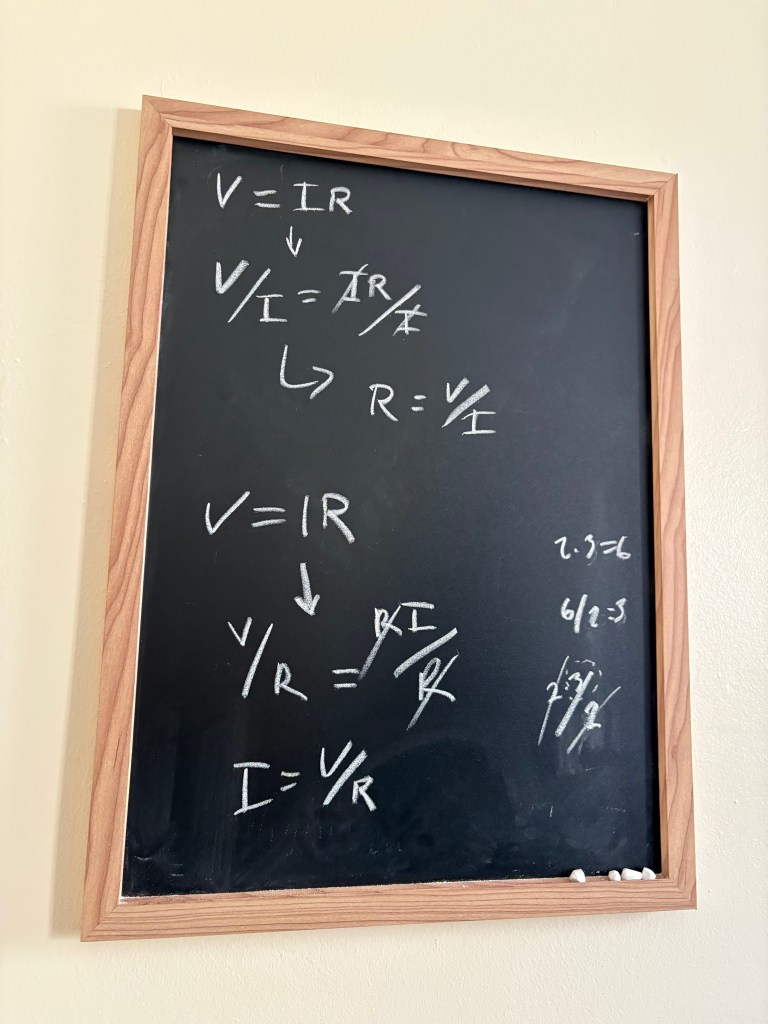 V = IR
↓
V/I = IR/I
↳ R = V/I
V = IR
↓
V/R = RI/R
I = V/R
2·3=6
6/2=3